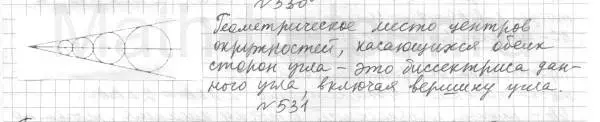 №530
Геометрическое место центров
окружностей, касающихся обеих
сторон угла – это биссектриса дан-
ного угла, включая вершину угла.
№531